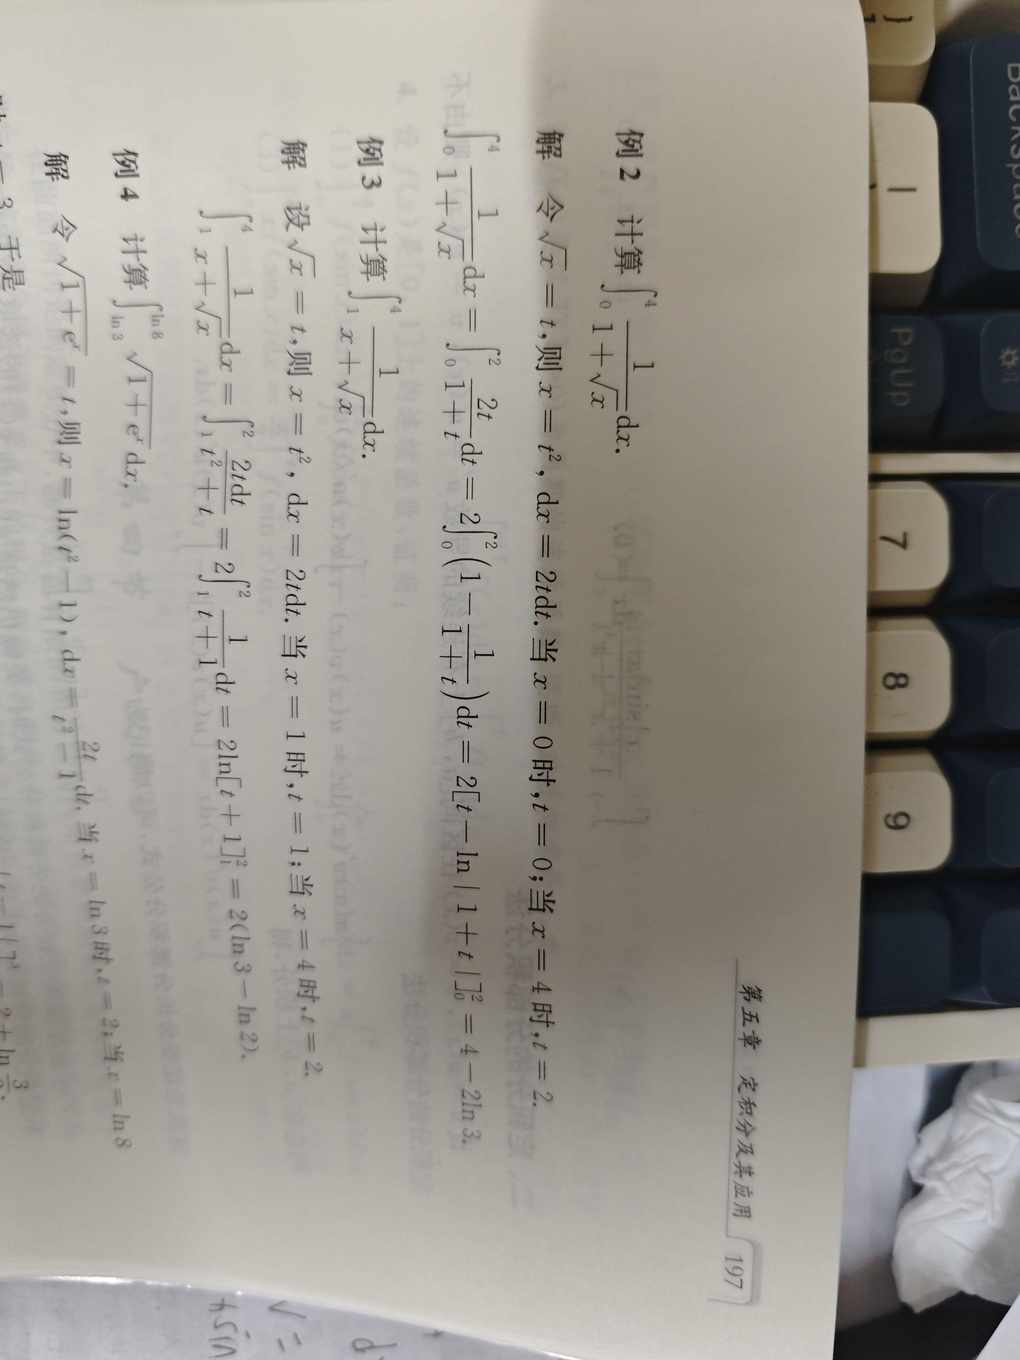 第五章 定积分及其应用 197
例2 计算∫₀⁴ 1/(1+√x) dx.
解 令√x = t,则 x = t², dx = 2tdt. 当 x = 0 时, t = 0; 当 x = 4 时, t = 2.
∫₀⁴ 1/(1+√x) dx = ∫₀² 2t/(1+t) dt = 2∫₀² (1 − 1/(1+t)) dt = 2[t − ln|1+t|]₀² = 4 − 2ln 3.
例3 计算∫₁⁴ 1/(x+√x) dx.
解 设√x = t,则 x = t², dx = 2tdt. 当 x = 1 时, t = 1; 当 x = 4 时, t = 2.
∫₁⁴ 1/(x+√x) dx = ∫₁² 2tdt/(t²+t) = 2∫₁² 1/(t+1) dt = 2ln[t+1]₁² = 2(ln 3 − ln 2).
例4 计算∫_{ln 3}^{ln 8} √(1+eˣ) dx.
解 令√(1+eˣ) = t,则 x = ln(t²−1), dx = 2t/(t²−1) dt. 当 x = ln 3 时, t = 2; 当 x = ln 8
3, 于是
Backspace
PgUp
7
8
9